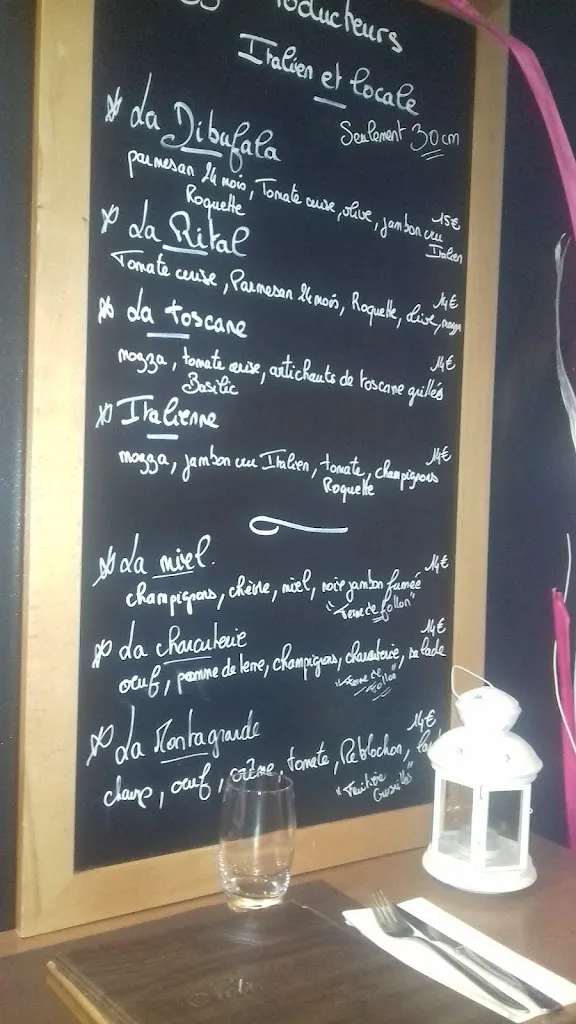 Producteurs
Italien et locale
Seulement 30 cm
La Dibufala
parmesan 24 mois, Tomate cerise, olive, jambon cru 15€
Roquette Italien
La Rital
Tomate cerise, Parmesan 24 mois, Roquette, olive, mozza 14€
La Toscane
mozza, tomate cerise, artichauts de toscane grillés 14€
Basilic
Italienne
mozza, jambon cru Italien, tomate, champignons 14€
Roquette
La miel.
champignons, chèvre, miel, noix jambon fumée 14€
"Ferme de follon"
La charcuterie
oeuf, pomme de terre, champignons, charcuterie, salade 14€
"Ferme de follon"
La Montagnarde
crème, tomate, Reblochon, 14€
oeuf,
"Fruitière